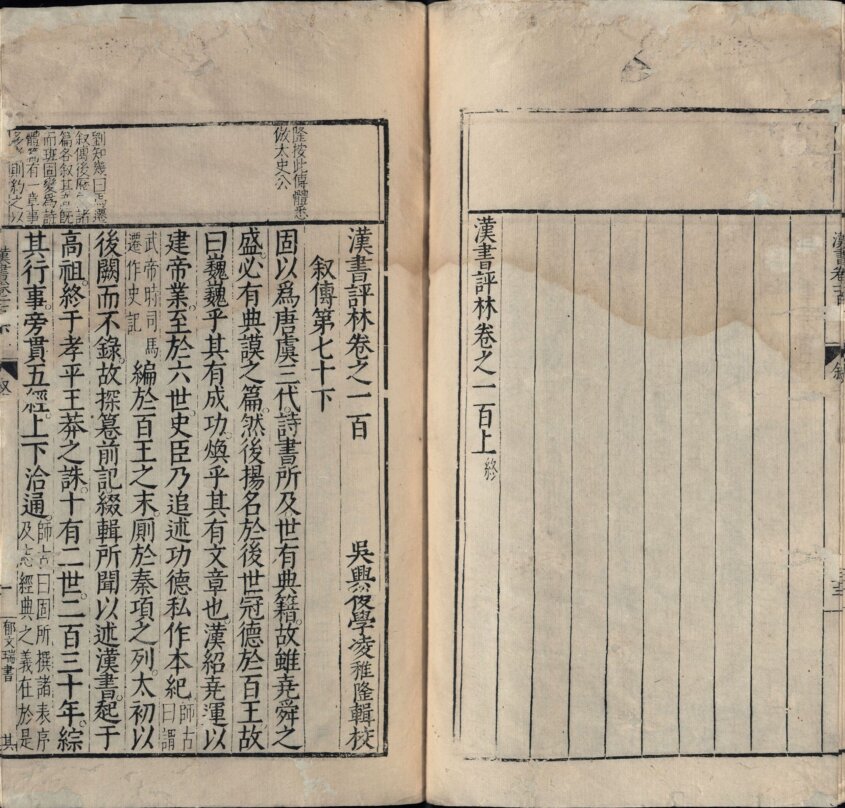 漢書評林卷之一百上終
漢書評林卷之一百
吳興後學凌稚隆輯校
叙傳第七十下
隆按此傳體悉
倣太史公
固以爲唐虞三代詩書所及世有典籍故雖堯舜之
盛必有典謨之篇然後揚名於後世冠德於百王故
曰巍巍乎其有成功煥乎其有文章也漢紹堯運以
建帝業至於六世史臣乃追述功德私作本紀師古曰謂
武帝時司馬遷作史記編於百王之末厠於秦項之列太初以
後闕而不錄故探篹前記綴輯所聞以述漢書起于
高祖終于孝平王莽之誅十有二世二百三十年綜
其行事旁貫五經上下洽通師古曰固所撰諸表序及志經典之義在於是
劉知幾曰馬遷
叙傳後歷諸
篇各叙其意既
而班固變爲詩
體有一章事
則約之以
郁文瑞書
其